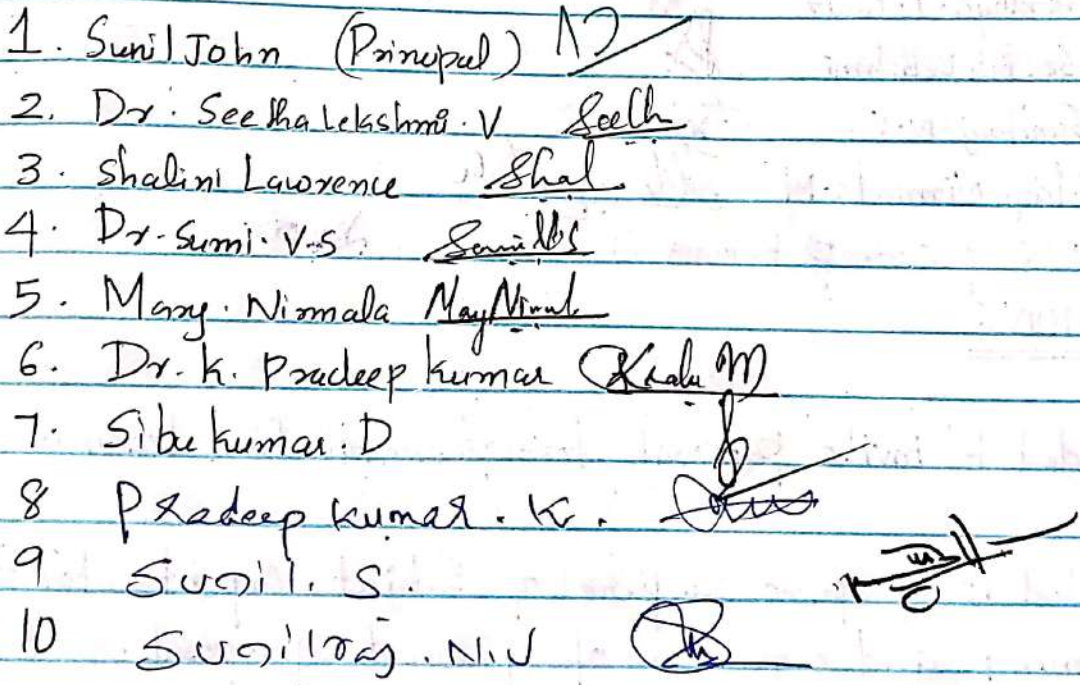 1. Sunil John (Principal)
2. Dr. Seetha Lekshmi. V Seeth
3. Shalini Lawrence Shal
4. Dr. Sumi. V.S. Sumi VS
5. Mary. Nirmala Mary Nirmal
6. Dr. K. Pradeep Kumar
7. Sibu Kumar. D
8 Pradeep Kumar. K.
9 Sunil. S.
10 Sunilraj. N.V